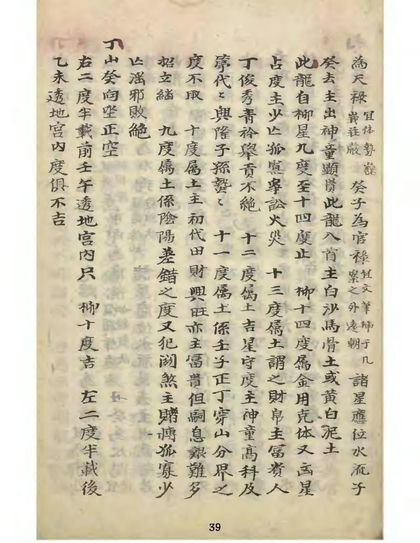 為天祿宜体势巍峩荘嚴 癸子為官祿狂文筆掃于几案之外遠朝 諸星應位水流子
癸去主出神童顯貴此龍入首主白沙馬骨土或黃白泥土
此龍自柳星九度至十四度止 柳十四度属金用克体又凶星
占度主少亡孤寡爭訟火災 十三度属土謂之財帛主富貴人
丁俊秀青衿舉貢不絕 十二度属土吉星守度主神童高科及
第代代興隆子孫蟄蟄 十一度属土係壬子正丁穿山分界之
度不取 十度属土主初代田財興旺亦主富貴但嗣息艱難多
招立継 九度属土係陰陽差錯之度又犯關煞主賭博孤寡少
亡淫邪敗絕
丁山癸向坐正空
右二度半載前壬午透地宮內只 柳十度吉 左二度半載後
乙未透地宮內度俱不吉
39